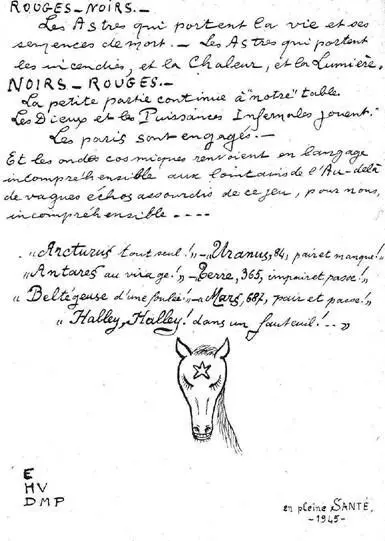 ROUGES-NOIRS.-
Les Astres qui portent la vie et ses
semences de mort. - Les Astres qui portent
les incendies, et la Chaleur, et la Lumière.
NOIRS-ROUGES.-
La petite partie continue à "notre" table.
Les Dieux et les Puissances Infernales jouent.
Les paris sont engagés.-
Et les ondes cosmiques renvoient en langage
incompréhensible aux lointains de l'Au-delà
de vagues échos assourdis de ce jeu, pour nous,
incompréhensible ----
"Arcturus tout seul!" - Uranus, 84, pair et manque!
"Antares au virage!" - Terre, 365, impair et passe!"
"Beltégeuse d'une foulée!" - Mars, 687, pair et passe!"
"Halley, Halley! dans un fauteuil!.."
E
HV
DMP
en pleine SANTÉ.
-1945-